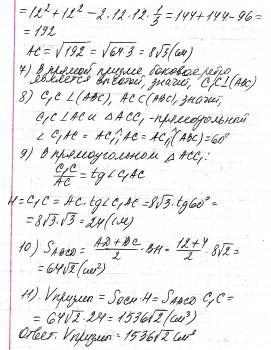 = 12² + 12² - 2·12·12·1/3 = 144 + 144 - 96 =
= 192
AC = √192 = √64·3 = 8√3 (см)
7) В прямой призме боковое ребро
является высотой, значит, C₁C⊥(ABC)
8) C₁C⊥(ABC), AC⊂(ABC), значит,
C₁C⊥AC и △ACC₁ - прямоугольный
∠C₁AC = AC₁^AC = AC₁^(ABC) = 60°
9) В прямоугольном △ACC₁:
C₁C/AC = tg∠C₁AC
H = C₁C = AC·tg∠C₁AC = 8√3·tg60° =
= 8√3·√3 = 24 (см)
10) S_ABCD = (AD+BC)/2 · BH = (12+4)/2 · 8√2 =
= 64√2 (см²)
11) Vпризм = Sосн·H = S_ABCD·C₁C =
= 64√2·24 = 1536√2 (см³)
Ответ: Vпризм = 1536√2 см³